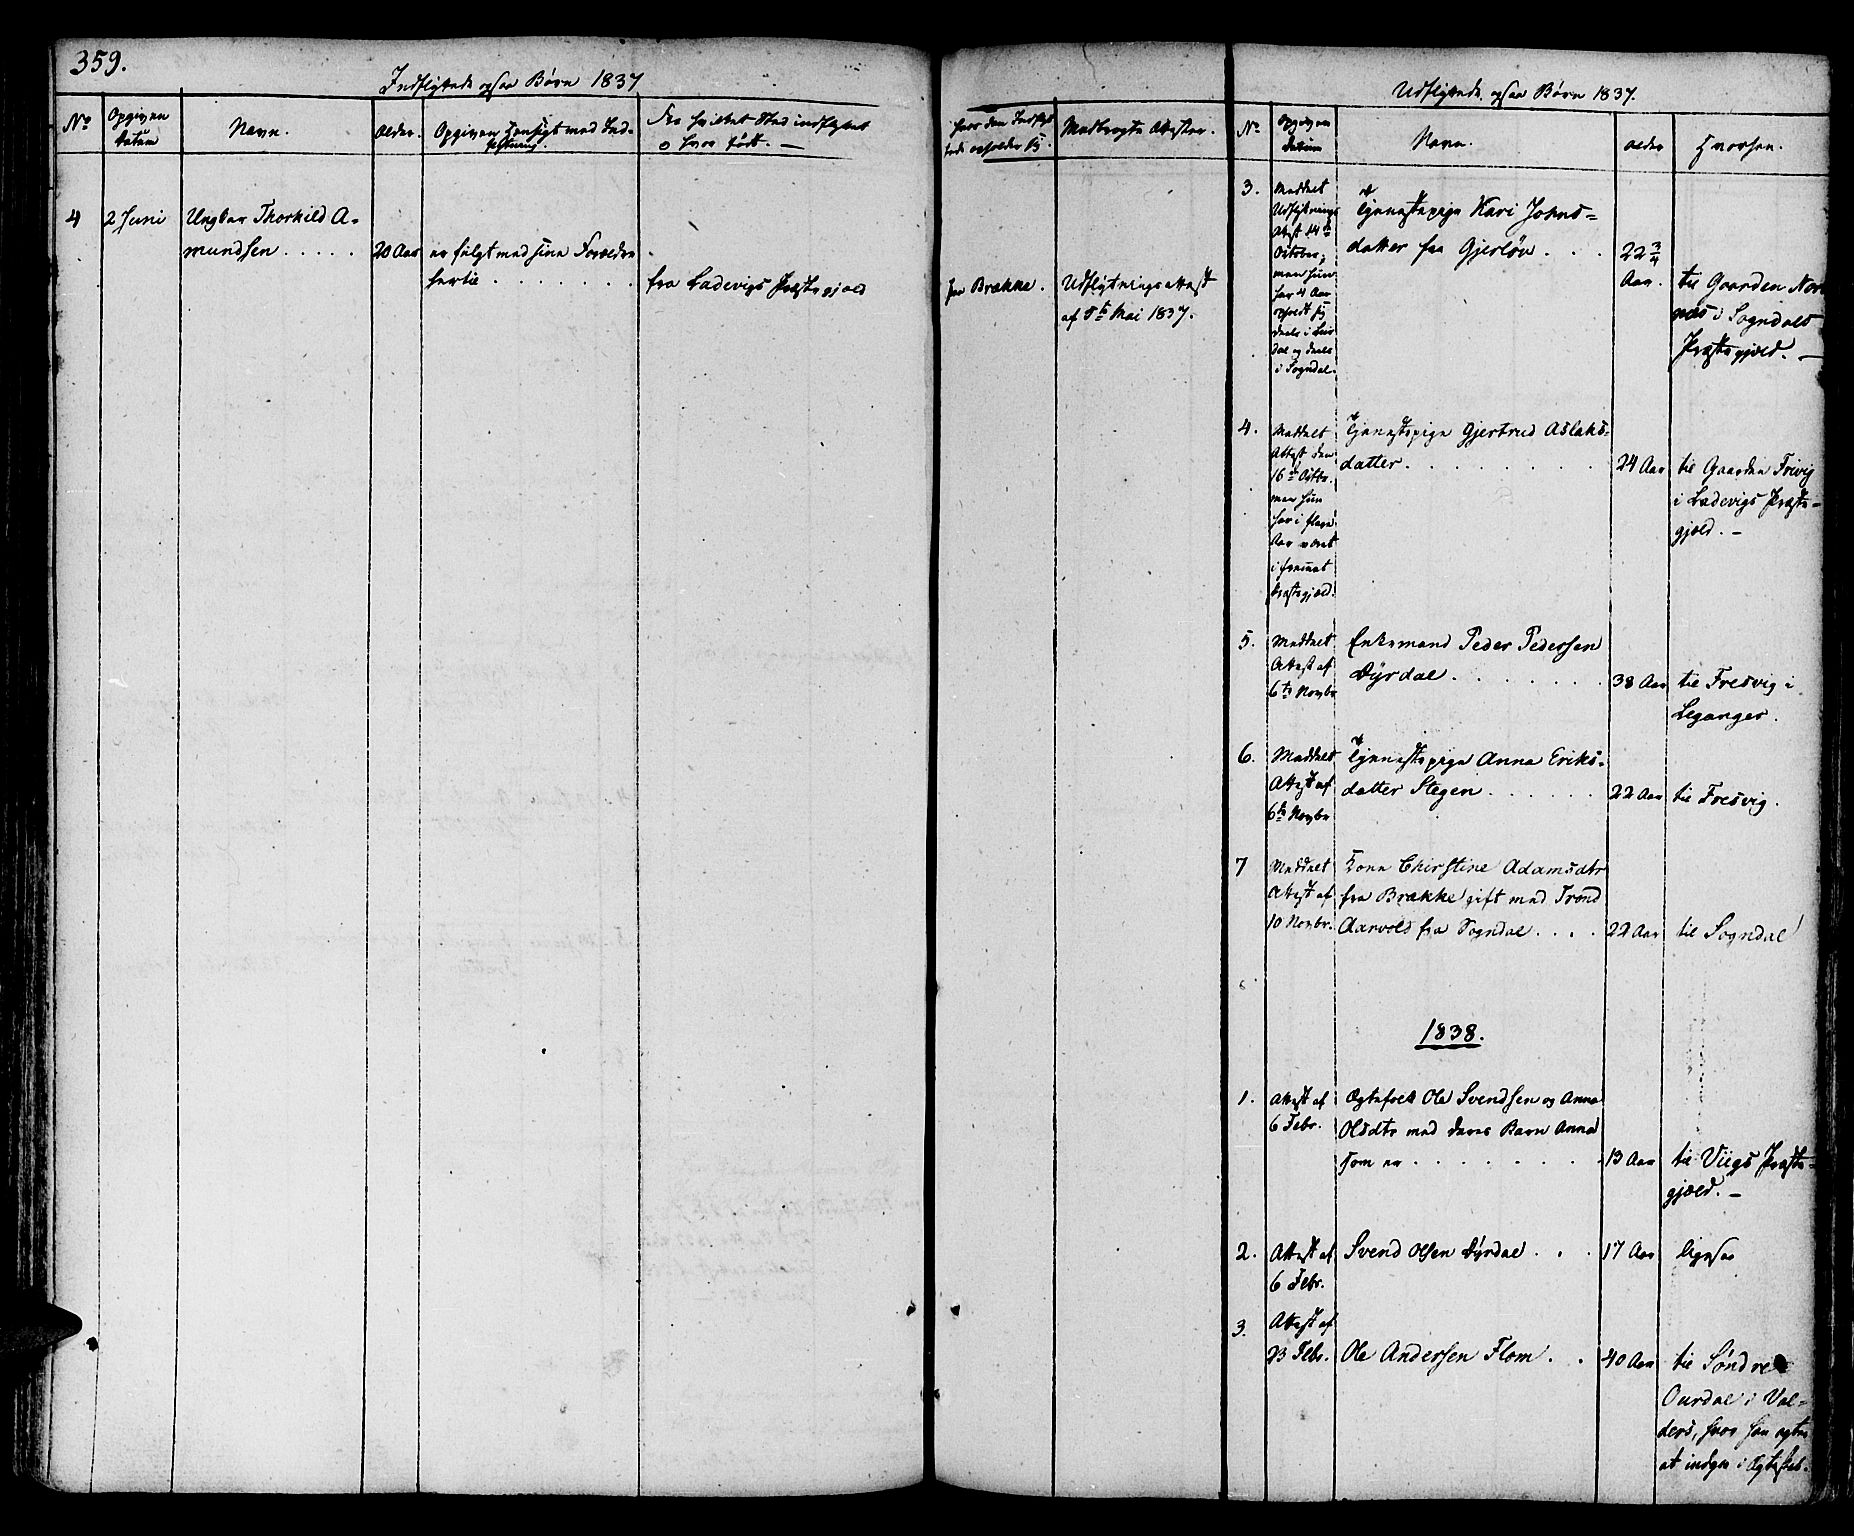 359.
Indflyttede ogsaa Børn 1837
No
Opgiven
Datum
Navn.
Alder.
Opgiven Hensigt med Ind-
flytning.
Fra hvilket Sted indflyttet
o hvor født. —
hvor den Indflyt
tede opholder sig.
Medbragte Attester.
4
2 Juni
Ungkar Thorkild A-
mundsen . . . . .
20 Aar
er fulgt med sine Forældre
hertil . . . . . . .
fra Ladevigs Præstegjæld
paa Brække.
Udflytningsattest
af 5te Mai 1837.
Udflyttede, ogsaa Børn 1837.
No
Opgiven
Datum
Navn.
Alder
Hvorhen.
3.
Meddelt
Udflytnings
Attest 14de
October,
men hun
har 4 Aar
opholdt sig
deels i Leir
dal og deels
i Sogndal.
Tjenestepige Kari Johns-
datter fra Gjerløv . . .
22 3/4
Aar.
til Gaarden Nor
næs i Sogndals
Præstegjæld. —
4.
Meddelt
Attest den
16de Octbr.
men hun
har i flere
Aar været
i fremmet
Præstegjæld.
Tjenestepige Gjertrud Aslaks-
datter. . . . . . . . .
24 Aar
til Gaarden Frivig
i Ladevigs Præste-
gjæld. —
5.
Meddelt
Attest af
6te Novbr
Enkemand Peder Pedersen
Dyrdal . . . . . . .
38 Aar
til Fresvig i
Leganger.
6.
Meddelt
Attest af
6te Novbr
Tjenestepige Anna Eriks-
datter Stegen . . . . . .
22 Aar
til Fresvig.
7
Meddelt
Attest af
10 Novbr.
Kone Chirstine Adamsdtr
fra Brække gift med Trond
Aarvold fra Sogndal . . . .
22 Aar
til Sogndal
1838.
1.
Attest af
6 Febr.
Ægtefolk Ole Svendsen og Anna
Olsdtr med deres Barn Anna
som er . . . . . . . .
13 Aar
til Viigs Præste-
gjæld. —
2.
Attest af
6 Febr.
Svend Olsen Dyrdal . . .
17 Aar
ligesaa
3.
Attest af
23 Febr.
Ole Andersen Flom . .
40 Aar
til Søndre
Ourdal i Val-
ders, hvor han agter
at indgaa i Ægteskab.